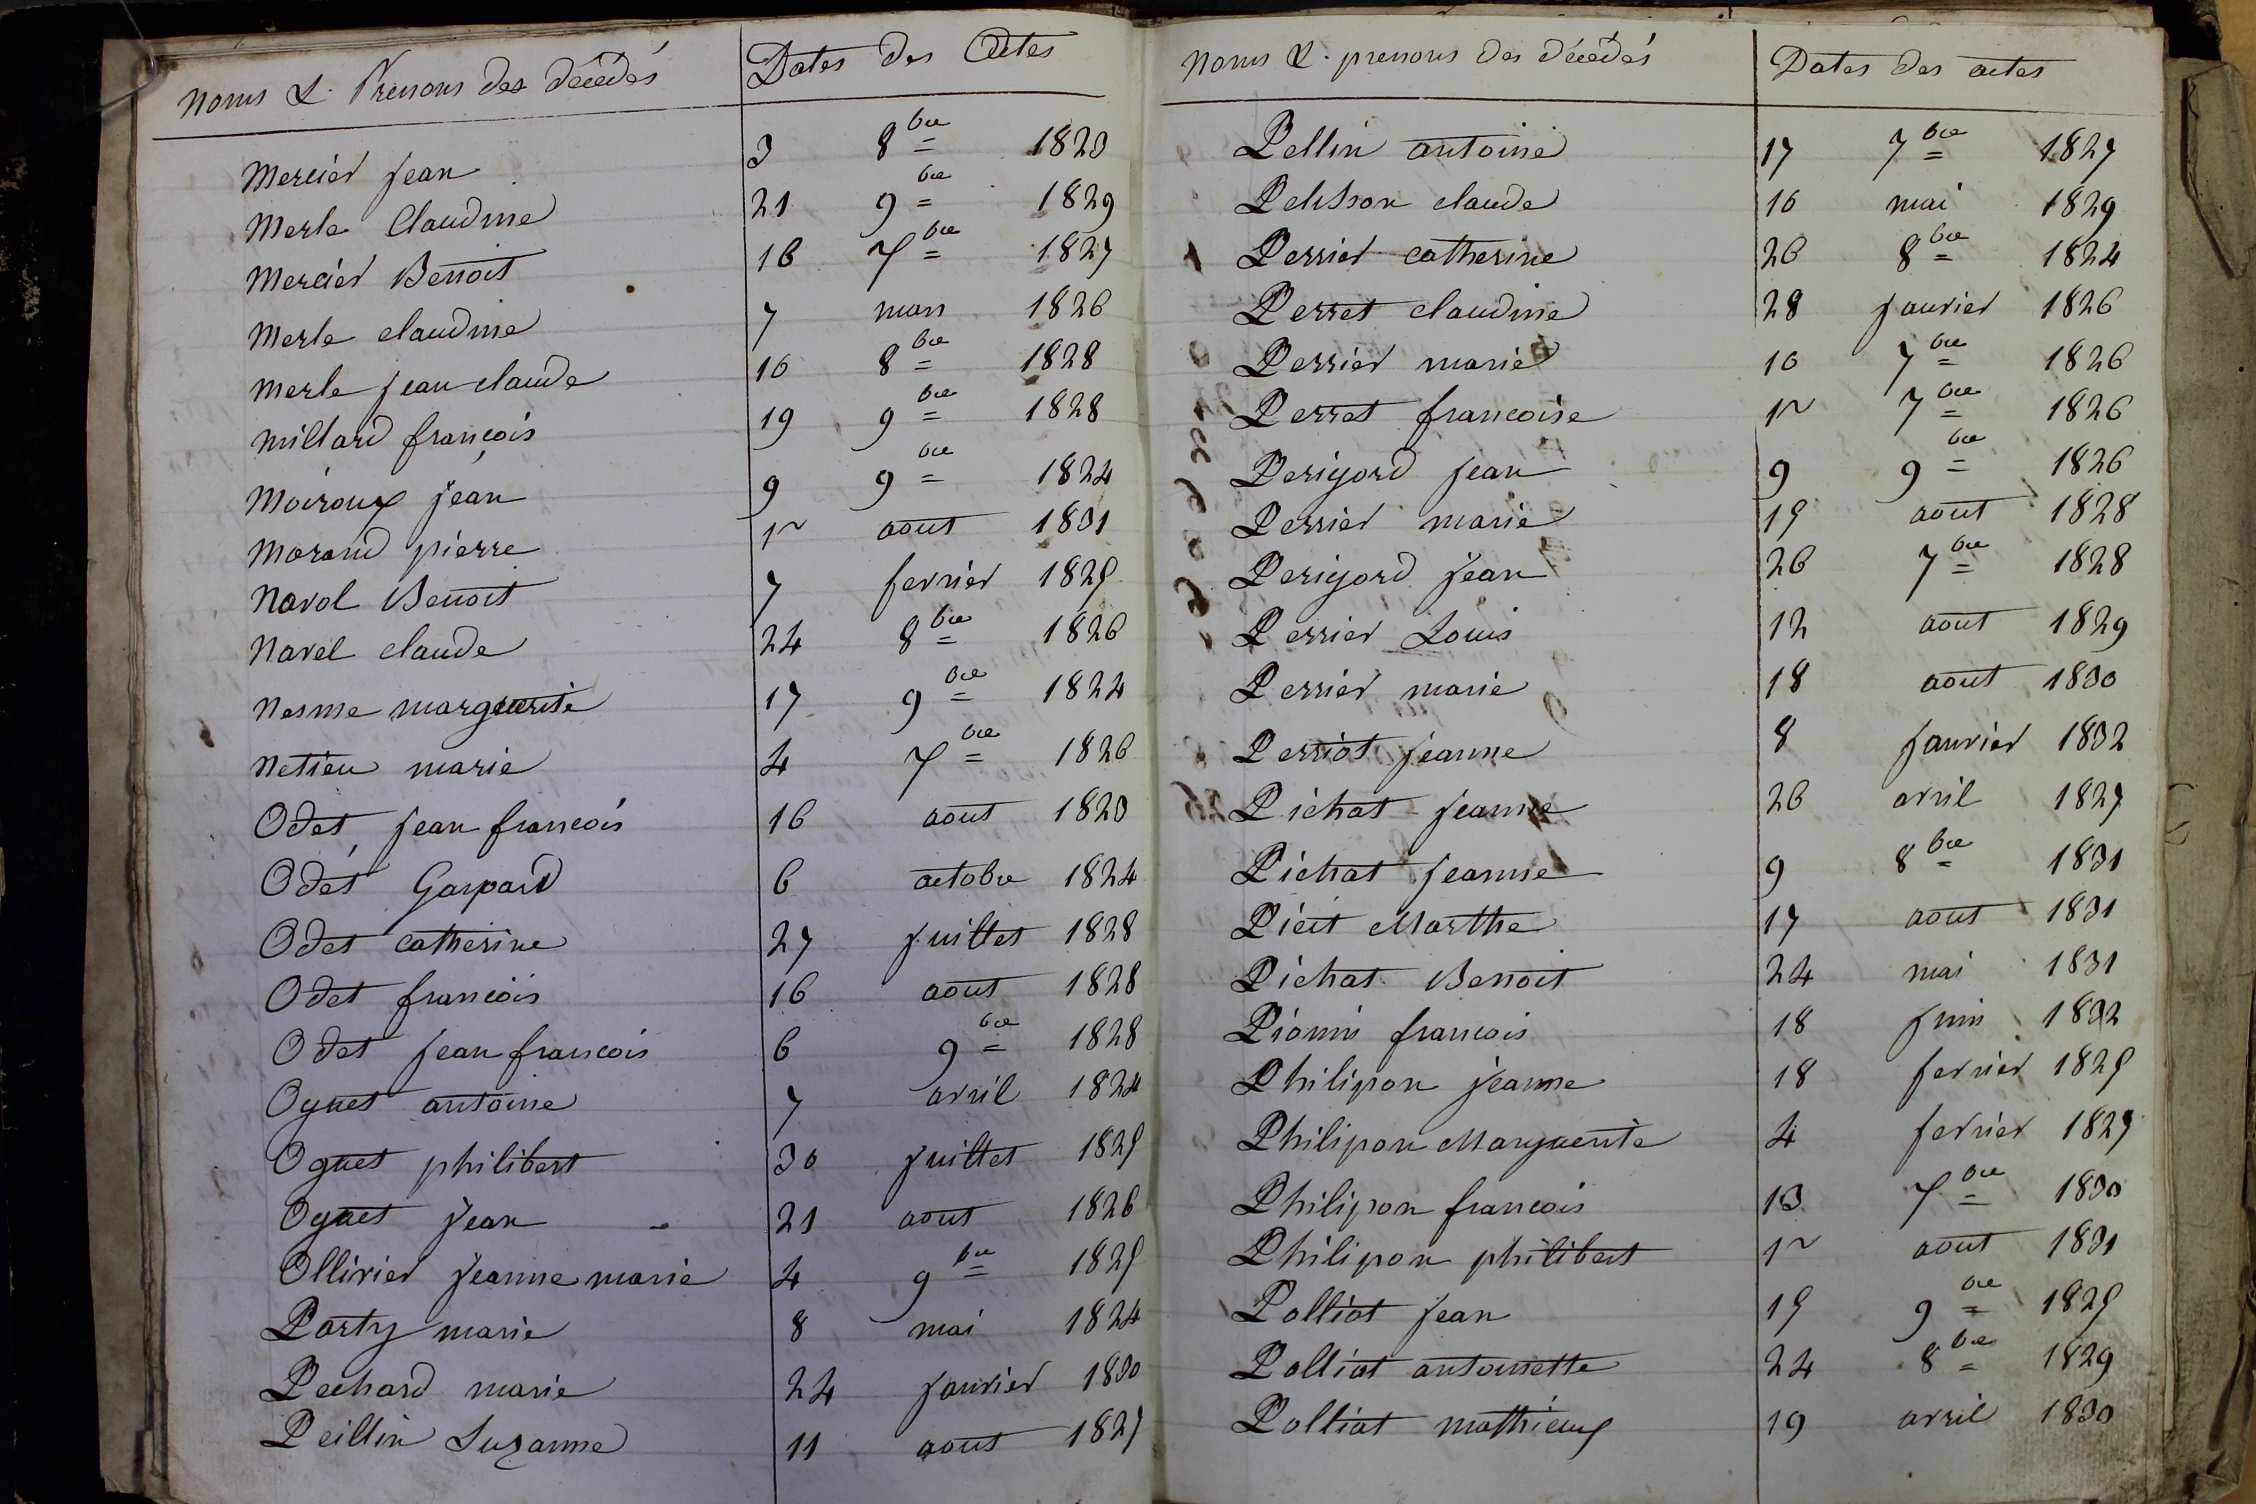 Noms & Prenoms des décédés Dates des Actes
Mercier jean 3 8bre 1823
Merle Claudine 21 9bre 1829
Mercier Benoit 16 7bre 1827
Merle claudine 7 mars 1826
Merle jean claude 16 8bre 1828
Millard françois 19 9bre 1828
Moiroux jean 9 9bre 1824
Morand pierre 1er aout 1831
Navol Benoit 7 fevrier 1825
Navel claude 24 8bre 1826
Nesme marguerite 17 9bre 1824
Netien marie 4 7bre 1826
Odet jean francois 16 aout 1823
Odet Gaspard 6 octobre 1824
Odet catherine 27 juillet 1828
Odet francois 16 aout 1828
Odet jean francois 6 9bre 1828
Oguet antoine 7 avril 1824
Oguet philibert 30 juillet 1825
Oguet jean 21 aout 1826
Ollivier jeanne marie 4 9bre 1825
Party marie 8 mai 1824
Pechard marie 24 janvier 1830
Peillin Suzanne 11 aout 1825
Noms & prenoms des décédés Dates des actes
Pellin antoine 17 7bre 1827
Pelisson claude 16 mai 1829
Perrier catherine 26 8bre 1824
Perret claudine 28 janvier 1826
Perrier marie 16 7bre 1826
Perret francoise 1er 7bre 1826
Perigord jean 9 9bre 1826
Perrier marie 15 aout 1828
Perigord jean 26 7bre 1828
Perrier Louis 12 aout 1829
Perrier marie 18 aout 1830
Perriot jeanne 8 janvier 1832
Pichat jeanne 26 avril 1827
Pichat jeanne 9 8bre 1831
Marthe 17 aout 1831
Pichat Benoit 24 mai 1831
Pionin francois 18 juin 1832
Philipon jeanne 18 fevrier 1825
Philipon Marguerite 4 fevrier 1827
Philipon francois 13 7bre 1830
Philipon philibert 1er aout 1831
Polliat jean 15 9bre 1825
Polliat antoinette 24 8bre 1829
Polliat mathieux 19 avril 1830